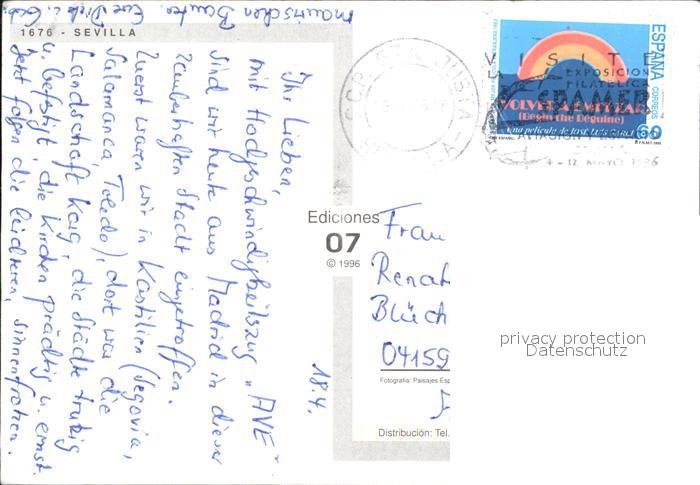 1676 - SEVILLA
18.4.
Ihr Lieben,
mit Hochgeschwindigkeitszug „AVE“
sind wir heute aus Madrid in dieser
zauberhaften Stadt eingetroffen.
Zuerst waren wir in Kastilien (Segovia,
Salamanca, Toledo), dort war die
Landschaft karg, die Städte trutzig
u. befestigt, die Kirchen prächtig u. ernst.
Jetzt folgen die leichteren, sinnenfrohen,
maurischen Bauten. Eure Dieth. u.
Ediciones
07
© 1996
Frau
Renat
Blüch
04159
Fotografía: Paisajes Esp
Distribución: Tel.
ESPAÑA
CORREOS
VOLVER A EMPEZAR
(Begin the Beguine)
Una película de José Luis Garci
60
VISITE
LA
EXPOSICION
FILATELICA
ESPAMER
AVIACION Y
MAYO 1996
STA. JUSTA
privacy protection
Datenschutz